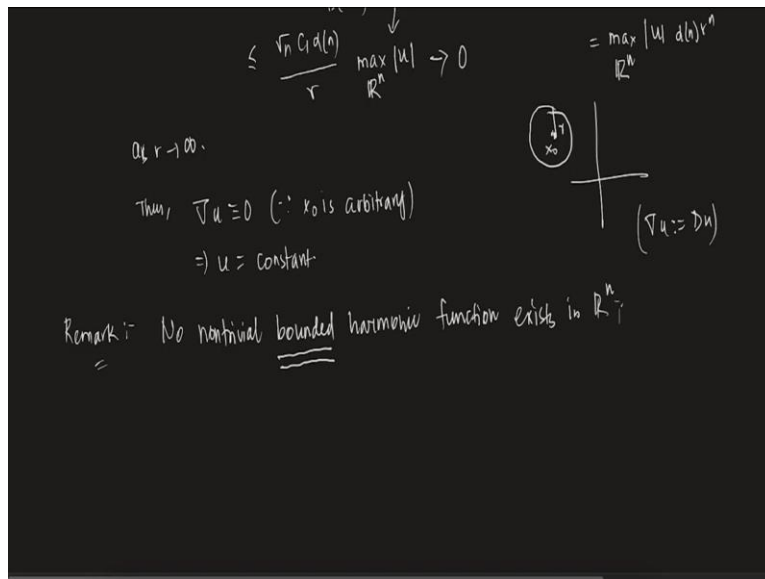 ≤ √n C₁ α(n) / r max_{ℝⁿ} |u| → 0
= max_{ℝⁿ} |u| α(n) rⁿ
as r → ∞.
r
x₀
Thus, ∇u ≡ 0 (∵ x₀ is arbitrary)
(∇u := Du)
⇒ u = constant
Remark :- No nontrivial bounded harmonic function exists in ℝⁿ;